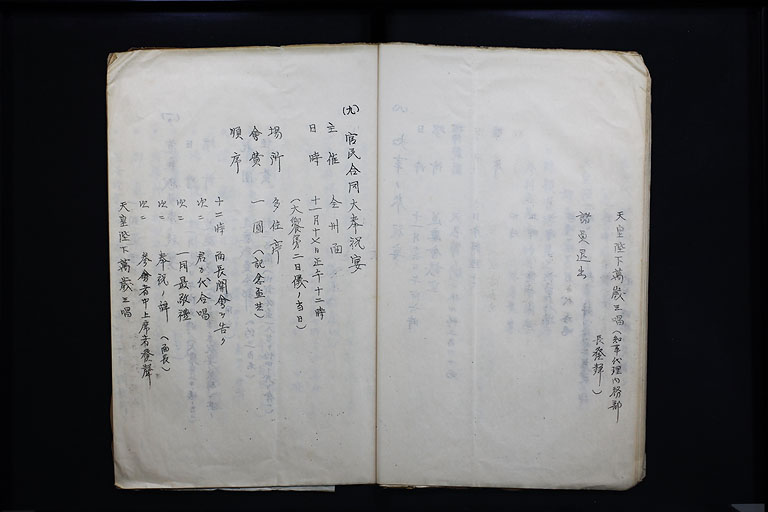 天皇陛下萬歳三唱(知事代理内務部
長發聲)
諸員退出
(九) 官民合同大奉祝宴
主催 全州面
日時 十一月十七日正午十二時
(大饗第二日儀ノ当日)
場所 多佳亭
會費 一圓(記念盃共)
順序
十二時 面長開會ヲ告ク
次ニ 君ガ代合唱
次ニ 一同最敬禮
次ニ 奉祝ノ辞(面長)
次ニ 参會者中上席者發聲
天皇陛下萬歳三唱